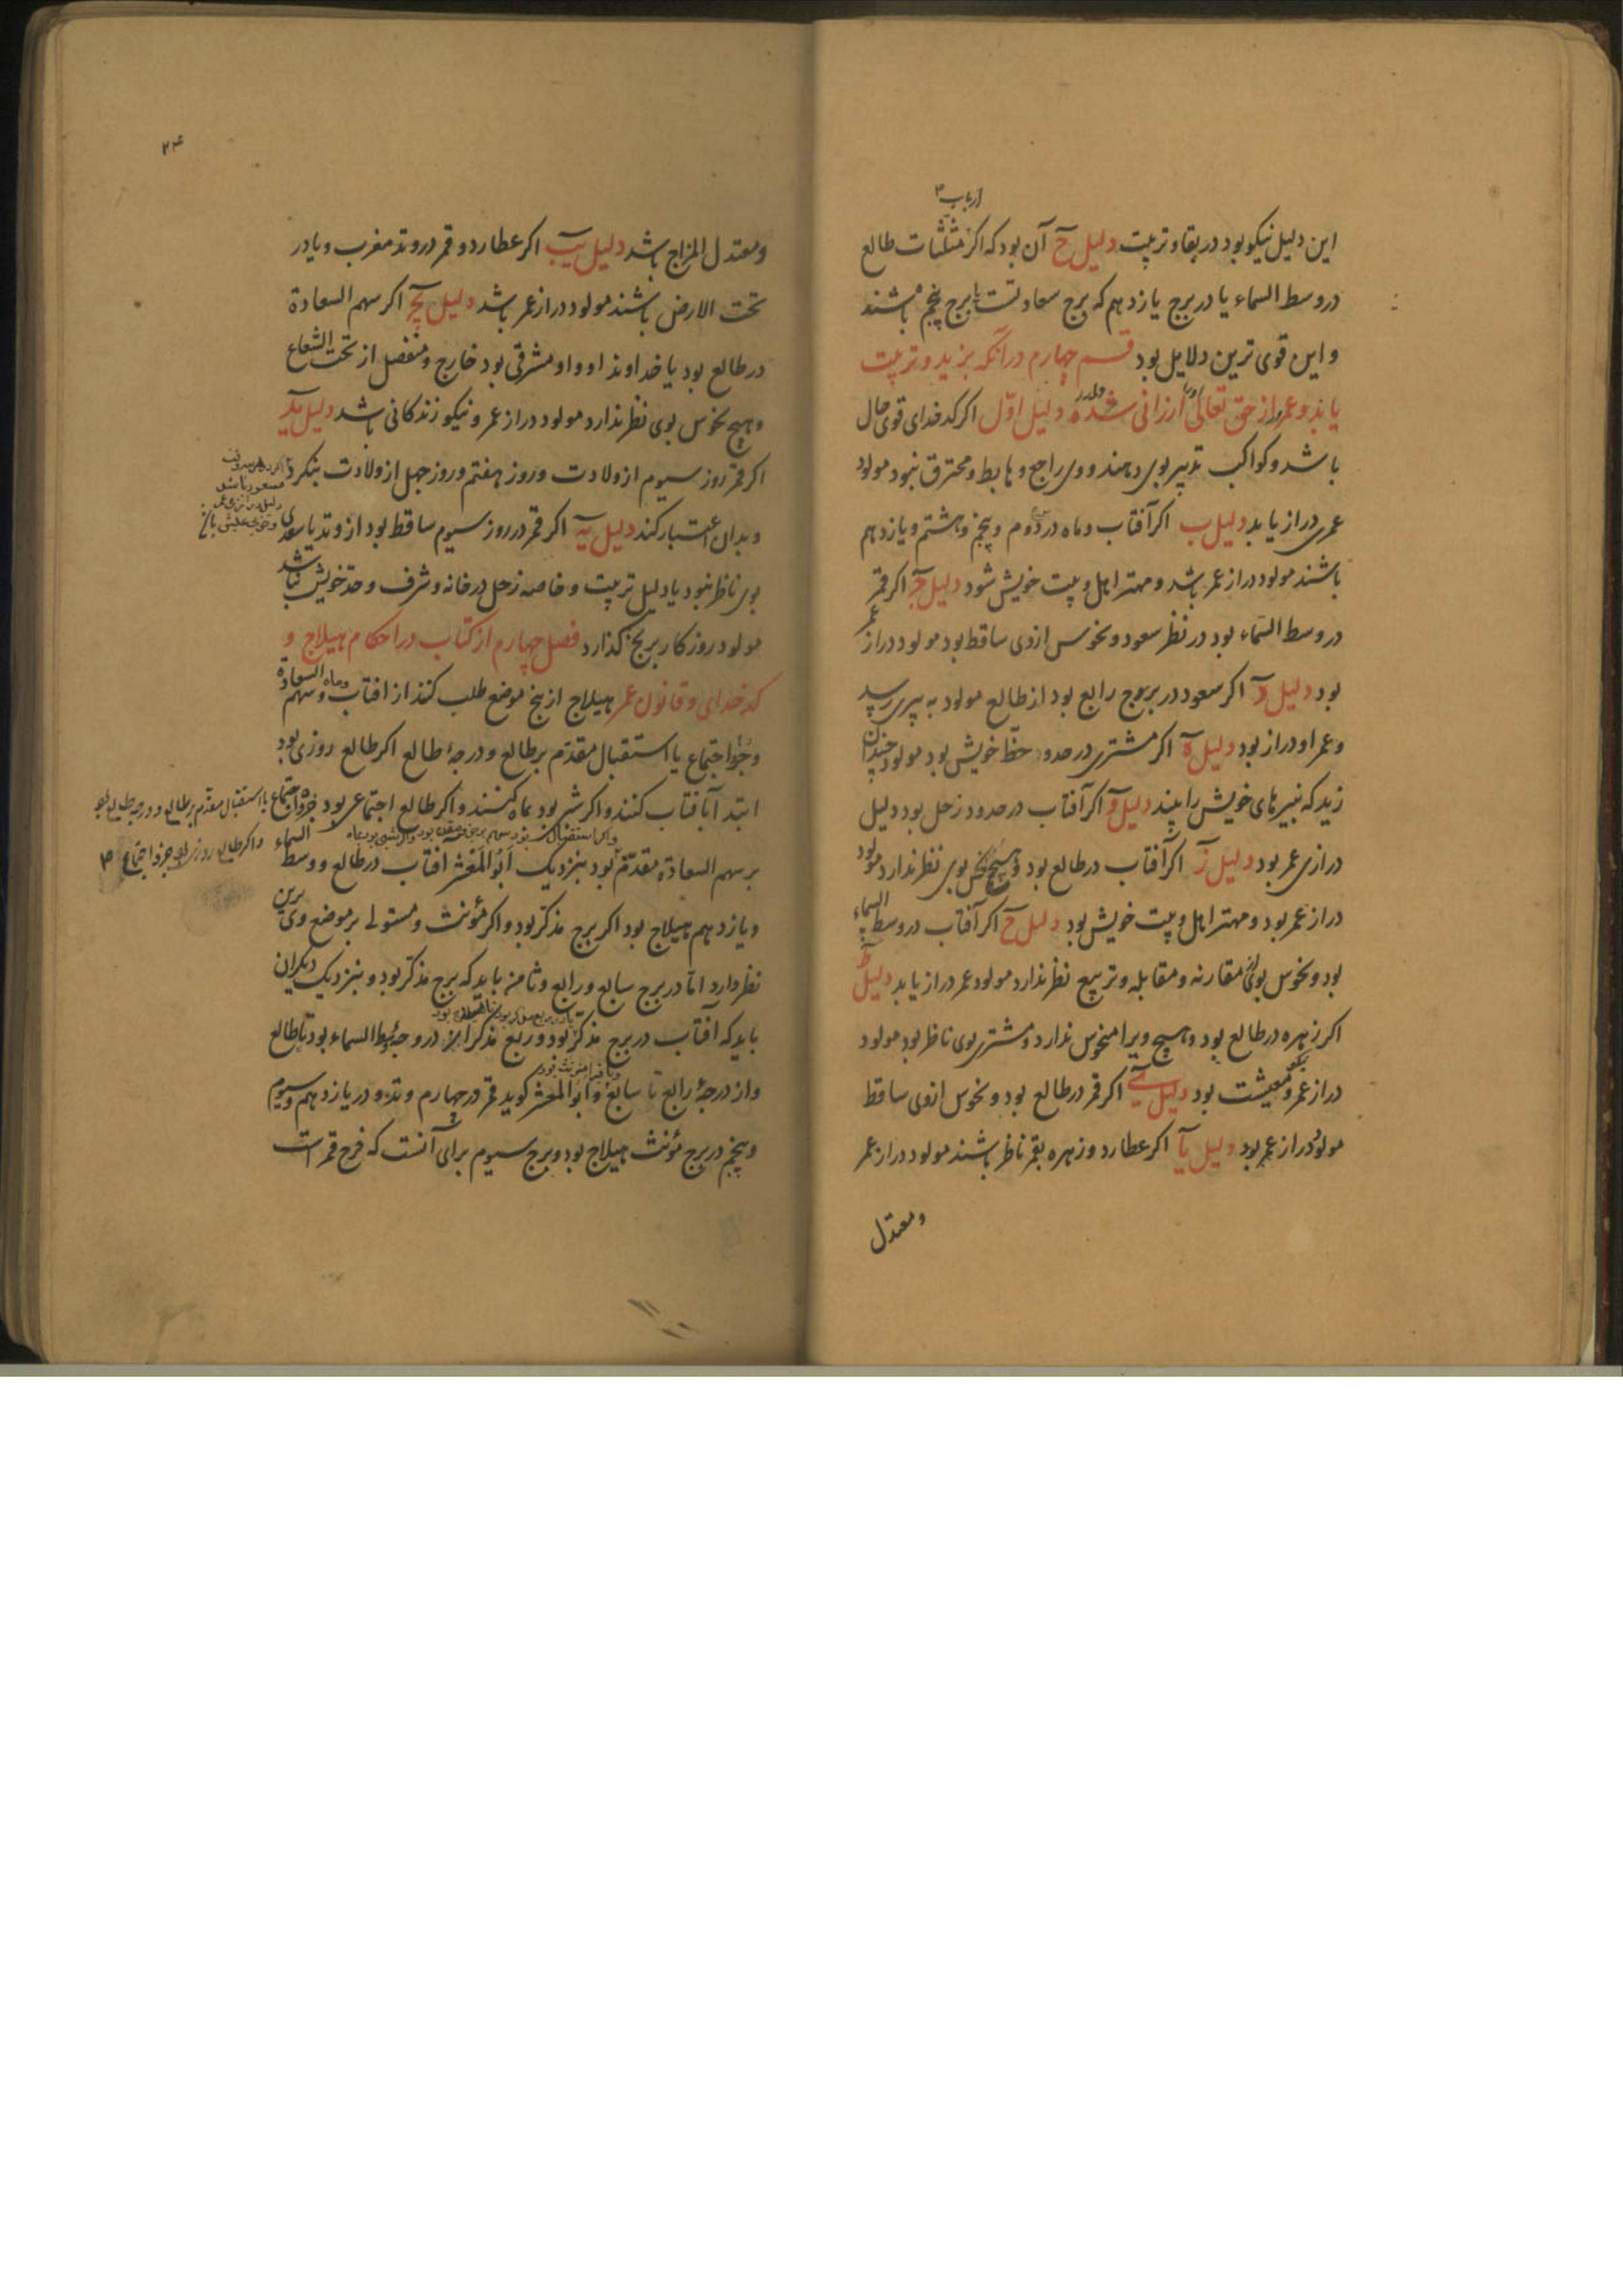 ارباب
این دلیل نیکو بود در بقا و تربیت دلیل ح آن بود که اکر مثلثات طالع
در وسط السماء یا در برج یازدهم که برج سعادتست یا برج پنجم باشند
و این قوی ترین دلایل بود قسم چهارم در آنکه بزید و تربیت
یابد و عمر از حق تعالی ارزانی شده دلیل اول اکر کدخدای قوی حال
باشد و کواکب تدبیر بوی دهند و وی راجع و هابط و محترق نبود مولود
عمری دراز یابد دلیل ب اکر آفتاب و ماه در دوم و پنجم و هشتم و یازدهم
باشند مولود دراز عمر باشد و مهتر اهل و بیت خویش شود دلیل ج اکر قمر
در وسط السماء بود در نظر سعود و نحوس ازوی ساقط بود مولود دراز عمر
بود دلیل د اکر سعود در بروج رابع بود از طالع مولود به پیری رسد
و عمر او دراز بود دلیل ه اکر مشتری در حدود حظ خویش بود مولود چندان
زید که نبیرهای خویش را بیند دلیل و اکر آفتاب در حدود زحل بود دلیل
درازی عمر بود دلیل ز اکر آفتاب در طالع بود و هیچ نحس بوی نظر ندارد مولود
دراز عمر بود و مهتر اهل و بیت خویش بود دلیل ح اکر آفتاب در وسط السماء
بود و نحوس بوی مقارنه و مقابله و تربیع نظر ندارد مولود عمر دراز یابد دلیل ط
اکر زهره در طالع بود و هیچ ویرا منحوس ندارد و مشتری بوی ناظر بود مولود
دراز عمر و نیکو معیشت بود دلیل ی اکر قمر در طالع بود و نحوس ازوی ساقط
مولود دراز عمر بود دلیل یا اکر عطارد و زهره بقمر ناظر باشند مولود دراز عمر
و معتدل
۲۴
و معتدل المزاج باشد دلیل یب اکر عطارد و قمر در وتد مغرب و یا در
تحت الارض باشند مولود دراز عمر باشد دلیل یج اکر سهم السعادة
در طالع بود یا خداوند او و او مشرقی بود خارج و منفصل از تحت الشعاع
و هیچ نحوس بوی نظر ندارد مولود دراز عمر و نیکو زندکانی باشد دلیل ید
اکر قمر روز سیوم از ولادت و روز هفتم و روز چهل از ولادت بنکرد
مسعود باشد
دلیل درازی عمر
و خوبی عیش باشد
و بدان اعتبار کند دلیل یه اکر قمر در روز سیوم ساقط بود از وتد یا سعدی
بوی ناظر نبود یا دلیل تربیت و خاصه زحل در خانه و شرف و حد خویش باشد
مولود روزکار برنج کذارد فصل چهارم از کتاب در احکام هیلاج و
کدخدای و قانون عمر هیلاج از پنج موضع طلب کنند از افتاب و ماه و سهم السعادة
و جزو اجتماع یا استقبال مقدم بر طالع و درجه طالع اکر طالع روزی بود
ابتدا آبافتاب کنند و اکر شبی بود بماه کنند و اکر طالع اجتماعی بود جزو اجتماع
یا استقبال مقدم بر طالع و درجه طالع
و اکر طالع روزی بود جزو اجتماع
بر سهم السعادة مقدم بود بنزدیک ابو المعشر آفتاب در طالع و وسط السماء
و یازدهم هیلاج بود اکر برج مذکر بود و اکر مؤنث و مستولی بر موضع وی برین
نظر دارد اما در برج سابع و رابع و ثامنه باید که برج مذکر بود و بنزدیک دیکران
باید که آفتاب در برج مذکر بود و ربع مذکر از درجه وسط السماء بود تا طالع
و از درجهٔ رابع تا سابع و ابو المعشر کوید قمر در چهارم وتد و در یازدهم و سیوم
و پنجم در برج مؤنث هیلاج بود و برج سیوم برای آنست که فرح قمر است